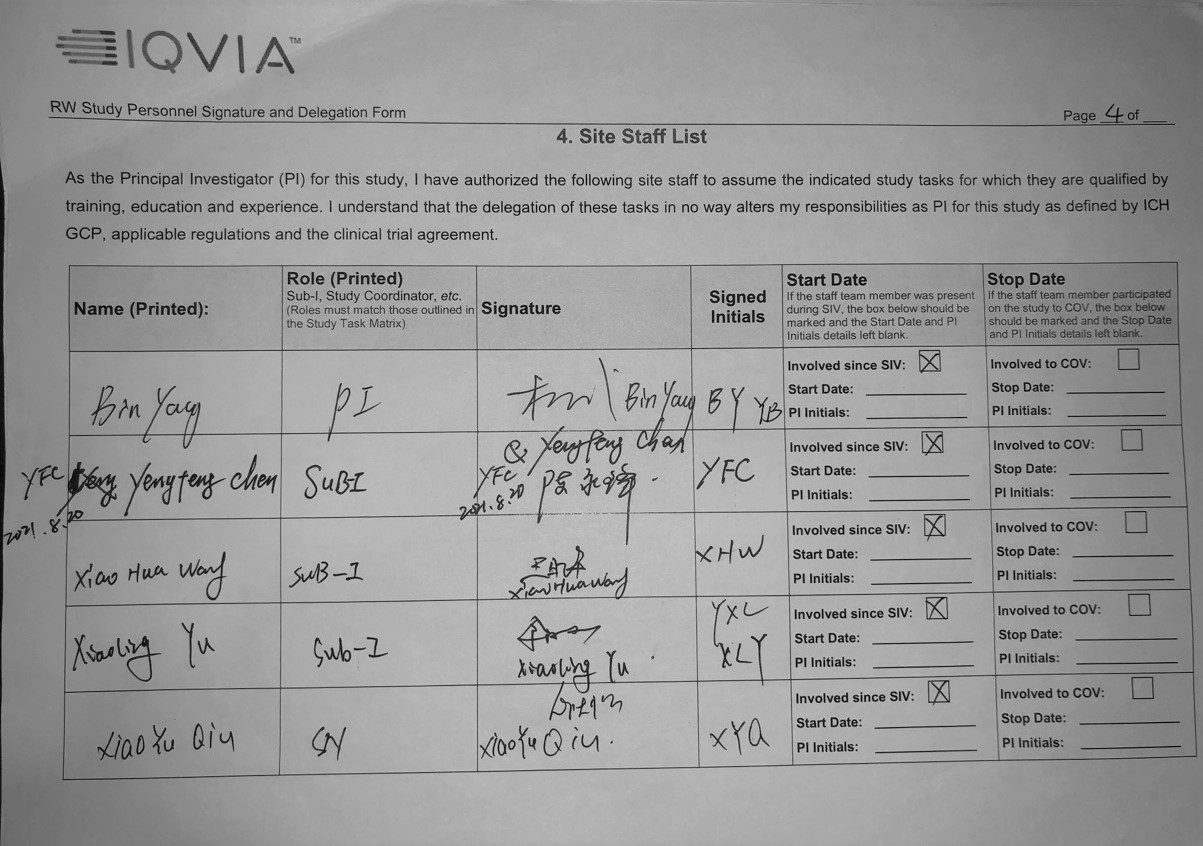 IQVIA™
RW Study Personnel Signature and Delegation Form
Page 4 of ___
4. Site Staff List
As the Principal Investigator (PI) for this study, I have authorized the following site staff to assume the indicated study tasks for which they are qualified by
training, education and experience. I understand that the delegation of these tasks in no way alters my responsibilities as PI for this study as defined by ICH
GCP, applicable regulations and the clinical trial agreement.
Name (Printed):
Role (Printed)
Sub-I, Study Coordinator, etc.
(Roles must match those outlined in
the Study Task Matrix)
Signature
Signed
Initials
Start Date
If the staff team member was present
during SIV, the box below should be
marked and the Start Date and PI
Initials details left blank.
Stop Date
If the staff team member participated
on the study to COV, the box below
should be marked and the Stop Date
and PI Initials details left blank.
Bin Yang
PI
Bin Yang
BY YB
Involved since SIV: ☒
Start Date:
PI Initials:
Involved to COV: ☐
Stop Date:
PI Initials:
YFC
2021.8.20
Yengfeng chen
SuB-I
& Yengfeng Chan
YFC
2021.8.20
YFC
Involved since SIV: ☒
Start Date:
PI Initials:
Involved to COV: ☐
Stop Date:
PI Initials:
Xiao Hua Wang
SuB-I
Xiao Hua Wang
XHW
Involved since SIV: ☒
Start Date:
PI Initials:
Involved to COV: ☐
Stop Date:
PI Initials:
Xiaoling Yu
Sub-I
Xiaoling Yu
YXL
XLY
Involved since SIV: ☒
Start Date:
PI Initials:
Involved to COV: ☐
Stop Date:
PI Initials:
XiaoYu Qiu
SN
XiaoYu Qiu.
XYQ
Involved since SIV: ☒
Start Date:
PI Initials:
Involved to COV: ☐
Stop Date:
PI Initials: